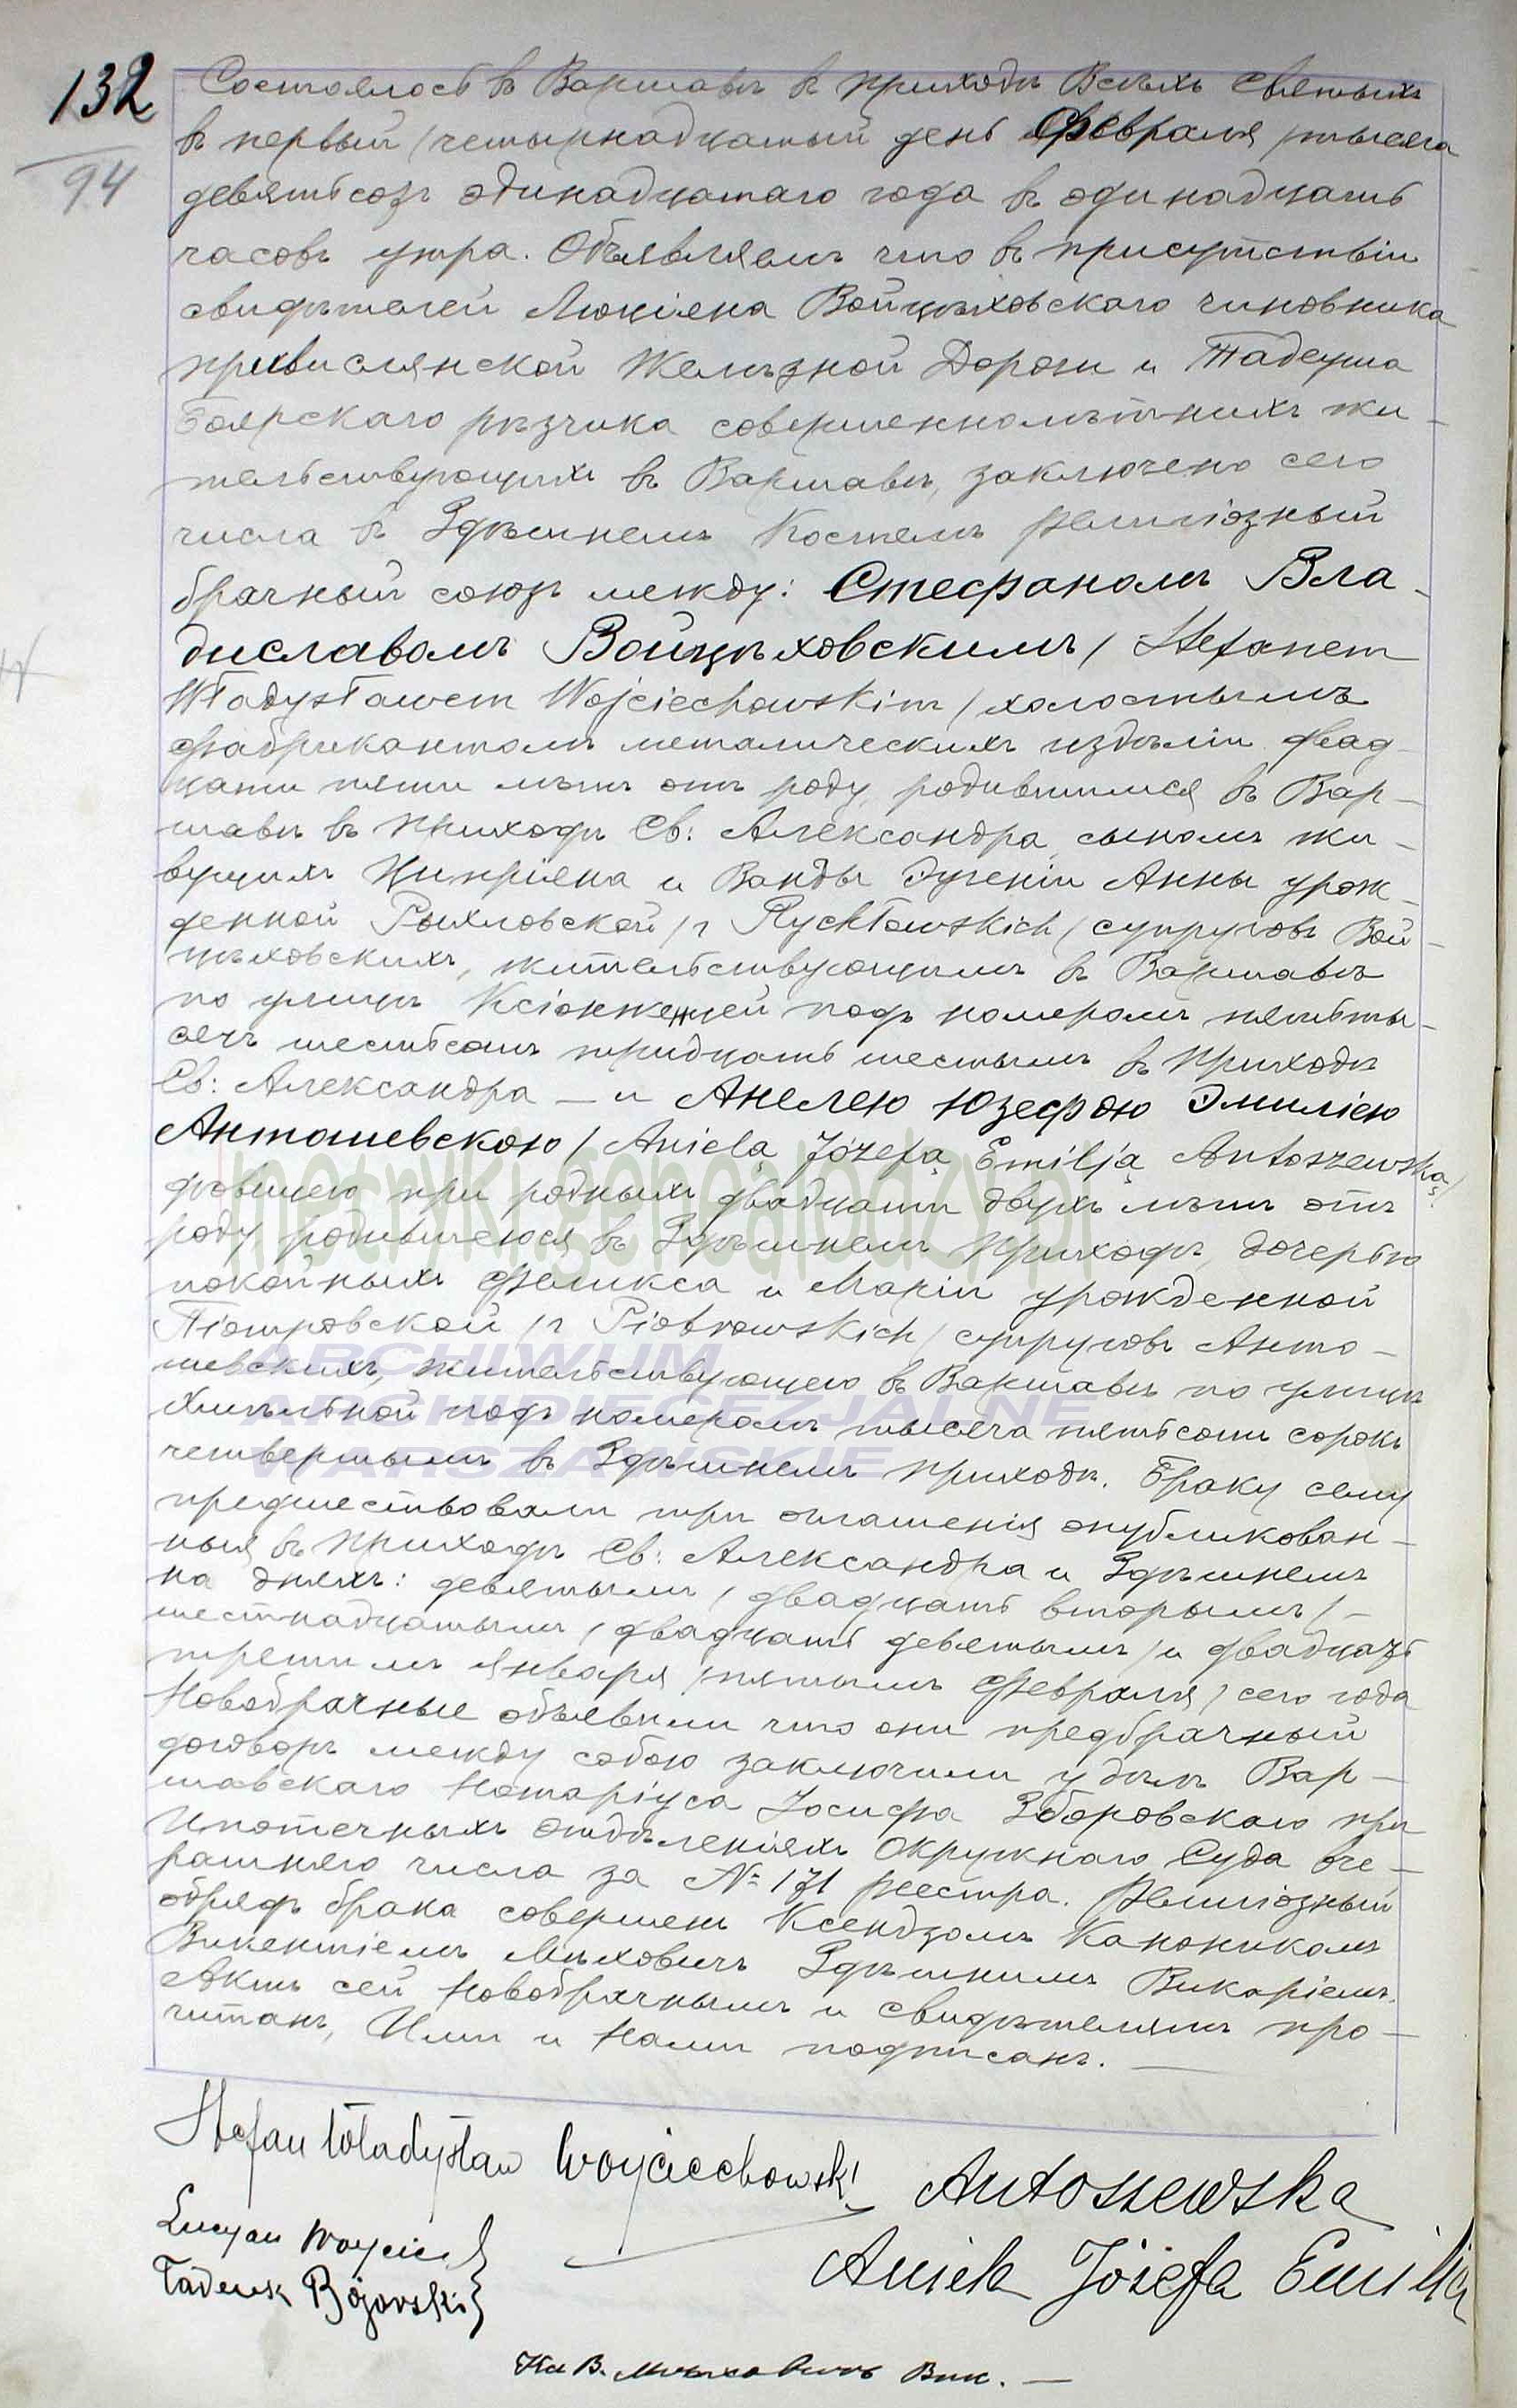 132
94
Состоялось въ Варшавѣ въ приходѣ Всѣхъ Святыхъ
въ первый /четырнадцатый день Февраля /тысяча
девятьсотъ одинадцатаго года въ одинадцать
часовъ утра. Объявляемъ что въ присутствіи
свидѣтелей Люціяна Войцѣховскаго чиновника
привислянской Желѣзной Дороги и Тадеуша
Боярскаго рѣзчика совершеннолѣтнихъ жи-
тельствующихъ въ Варшавѣ, заключено сего
числа въ Здѣшнемъ Костелѣ религіозный
брачный союзъ между: Стефаномъ Вла-
диславомъ Войцѣховскимъ / Stefanem
Władysławem Wojciechowskim / холостымъ
фабрикантомъ металическихъ издѣлій двад-
цати пяти лѣтъ отъ роду, родившимся въ Вар-
шавѣ въ приходѣ Св: Александра сыномъ жи-
вущихъ Ципріяна и Ванды Эугеніи Анны урож-
денной Рыхловской /z Rychłowskich/ супруговъ Вой-
цѣховскихъ, жительствующимъ въ Варшавѣ
по улицѣ Ксіонженцей подъ номеромъ пятьты-
сячъ шестьсотъ тридцать шестымъ въ приходѣ
Св: Александра — и Анелею Юзефою Эмиліею
Антошевскою / Anielą Józefą Emilją Antoszewską/
дѣвицею при родныхъ двадцати двухъ лѣтъ отъ
роду родившеюся въ Здѣшнемъ приходѣ, дочерью
покойныхъ Феликса и Маріи урожденной
Піотровской /z Piotrowskich/ супруговъ Анто-
шевскихъ, жительствующею въ Варшавѣ по улицѣ
Хмѣльной подъ номеромъ тысяча пятьсотъ сорокъ
четвертымъ въ Здѣшнемъ приходѣ. Браку сему
предшествовали три оглашенія опубликован-
ныя въ приходѣ Св: Александра и Здѣшнемъ
на дняхъ: девятымъ / двадцать вторымъ / –
шестнадцатымъ / двадцать девятымъ / и двадцать
третьимъ Января /пятымъ Февраля/ сего года
Новобрачные объявили что они предбрачный
договоръ между собою заключили у дѣлъ Вар-
шавскаго Нотаріуса Іосифа Зборовскаго при
Ипотечныхъ отдѣленіяхъ Окружнаго Суда вче-
рашняго числа за № 171 реестра. Религіозный
обрядъ брака совершенъ Ксендзомъ Каноникомъ
Викентіемъ Мѣховичъ Здѣшнимъ Викаріемъ.
Актъ сей Новобрачнымъ и свидѣтелямъ про-
читанъ, Ими и Нами подписанъ. —
Stefan Władysław Wojciechowski
Antoszewska
Lucyan Wojcie
Aniela Józefa Emilia
Tadeusz Bojarski
Кс В. Мѣховичъ Вик. —
metryki.genealodzy.pl
ARCHIWUM
ARCHIDIECEZJALNE
WARSZAWSKIE